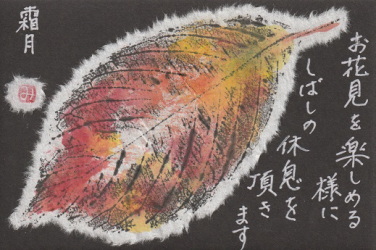 お花見を楽しめる
様に
しばしの休息を
頂き
ます
霜月